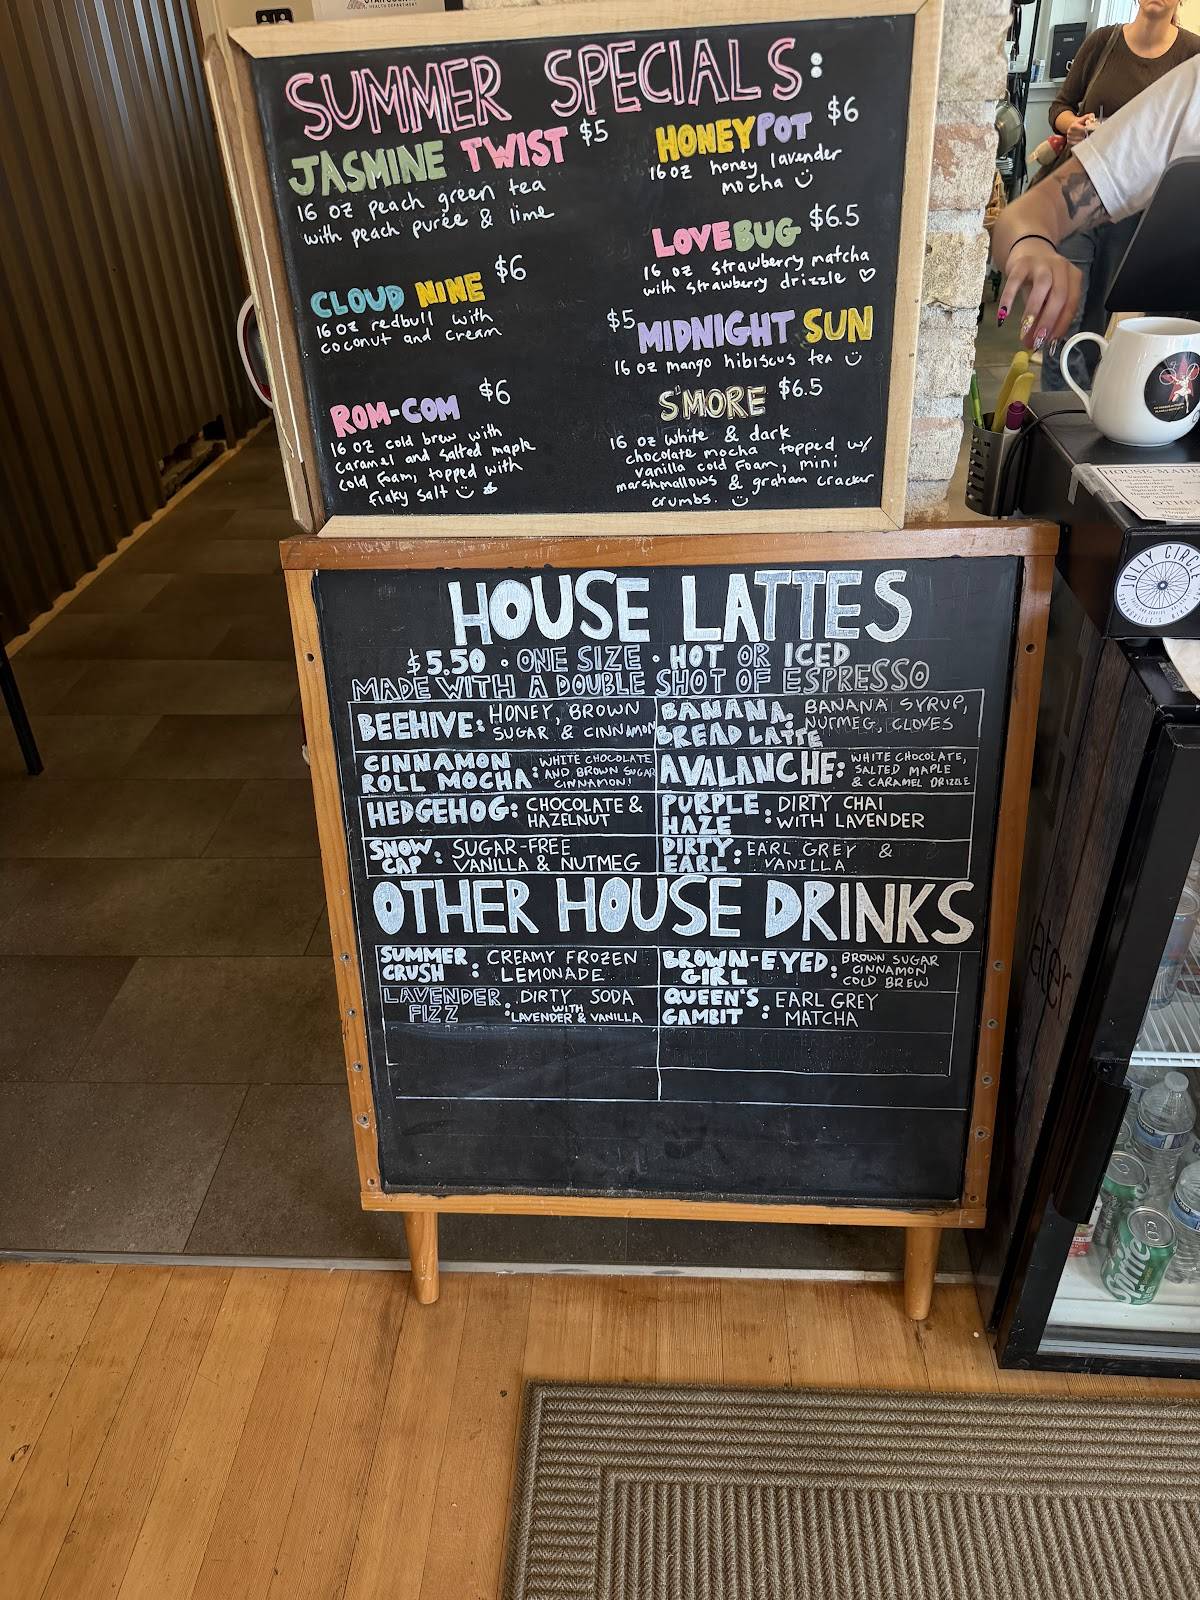 HEALTH DEPARTMENT
SUMMER SPECIALS:
JASMINE TWIST $5
16 oz peach green tea
with peach purée & lime
CLOUD NINE $6
16 oz redbull with
coconut and cream
ROM-COM $6
16 oz cold brew with
caramel and salted maple
cold foam, topped with
flaky salt
HONEYPOT $6
16 oz honey lavender
mocha
LOVEBUG $6.5
16 oz strawberry matcha
with strawberry drizzle
$5 MIDNIGHT SUN
16 oz mango hibiscus tea
S'MORE $6.5
16 oz white & dark
chocolate mocha topped w/
vanilla cold foam, mini
marshmallows & graham cracker
crumbs.
HOUSE LATTES
$5.50 · ONE SIZE · HOT OR ICED
MADE WITH A DOUBLE SHOT OF ESPRESSO
BEEHIVE: HONEY, BROWN
SUGAR & CINNAMON
BANANA BREAD LATTE: BANANA SYRUP,
NUTMEG, CLOVES
CINNAMON
ROLL MOCHA: WHITE CHOCOLATE
AND BROWN SUGAR
CINNAMON!
AVALANCHE: WHITE CHOCOLATE,
SALTED MAPLE
& CARAMEL DRIZZLE
HEDGEHOG: CHOCOLATE &
HAZELNUT
PURPLE
HAZE: DIRTY CHAI
WITH LAVENDER
SNOW
CAP: SUGAR-FREE
VANILLA & NUTMEG
DIRTY
EARL: EARL GREY &
VANILLA
OTHER HOUSE DRINKS
SUMMER
CRUSH: CREAMY FROZEN
LEMONADE
BROWN-EYED
GIRL: BROWN SUGAR
CINNAMON
COLD BREW
LAVENDER
FIZZ: DIRTY SODA
WITH
LAVENDER & VANILLA
QUEEN'S
GAMBIT: EARL GREY
MATCHA
HOUSE-MADE
JOLLY CIRCLE
Sprite